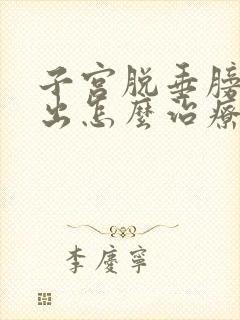 子宮脱垂膀
出怎麼治療
李慶寧